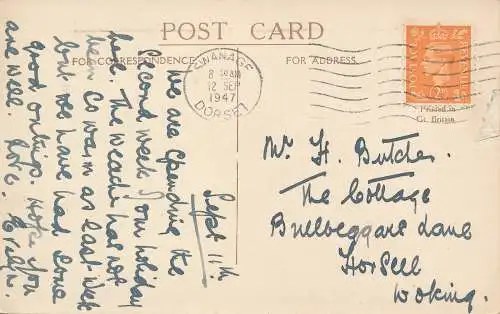 POST CARD
FOR CORRESPONDENCE
FOR ADDRESS.
SWANAGE
8 AM
12 SEP
1947
DORSET
POSTAGE
REVENUE
2D
Printed in
Gt. Britain
Sept 11th
We are spending the
second week of our holiday
here. The weather has not
been so warm as last week
but we have had some
good outings. Hope you
are well. Love. Evelyn
Mr H. Butcher
The Cottage
Bullbeggars Lane
Horsell
Woking.